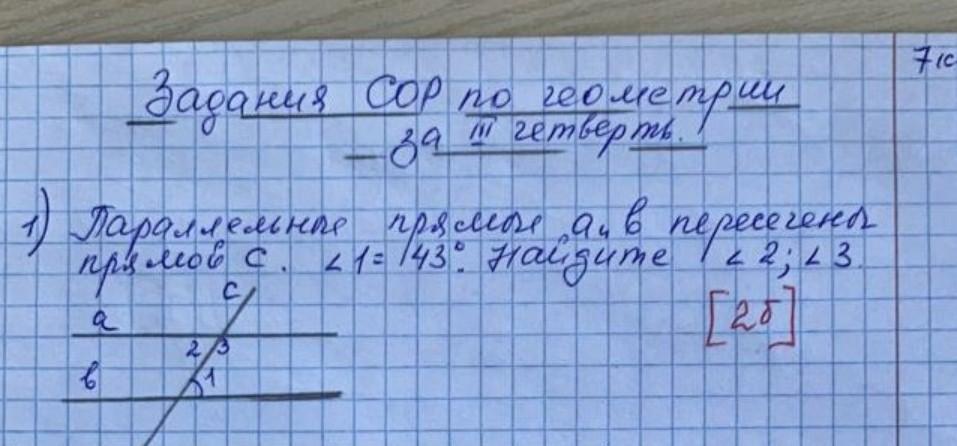 Задания СОР по геометрии
за III четверть.
7 к
1) Параллельные прямые а, в пересечены
прямой с. ∠1 = 143°. Найдите ∠2; ∠3.
[2б]
с
а
2 3
в 1